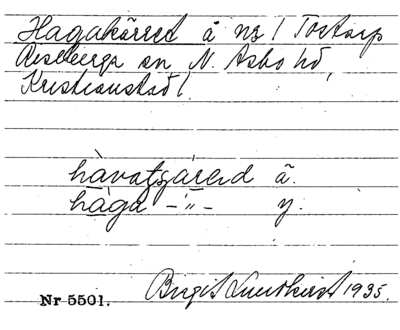 Hagakärret å nr 1 Tostarp
Riseberga sn N. Åsbo hd,
Kristianstad l.
hàvatgárəd ä.
hàga -"- y.
Nr 5501. Birgit Lundkvist 1935.